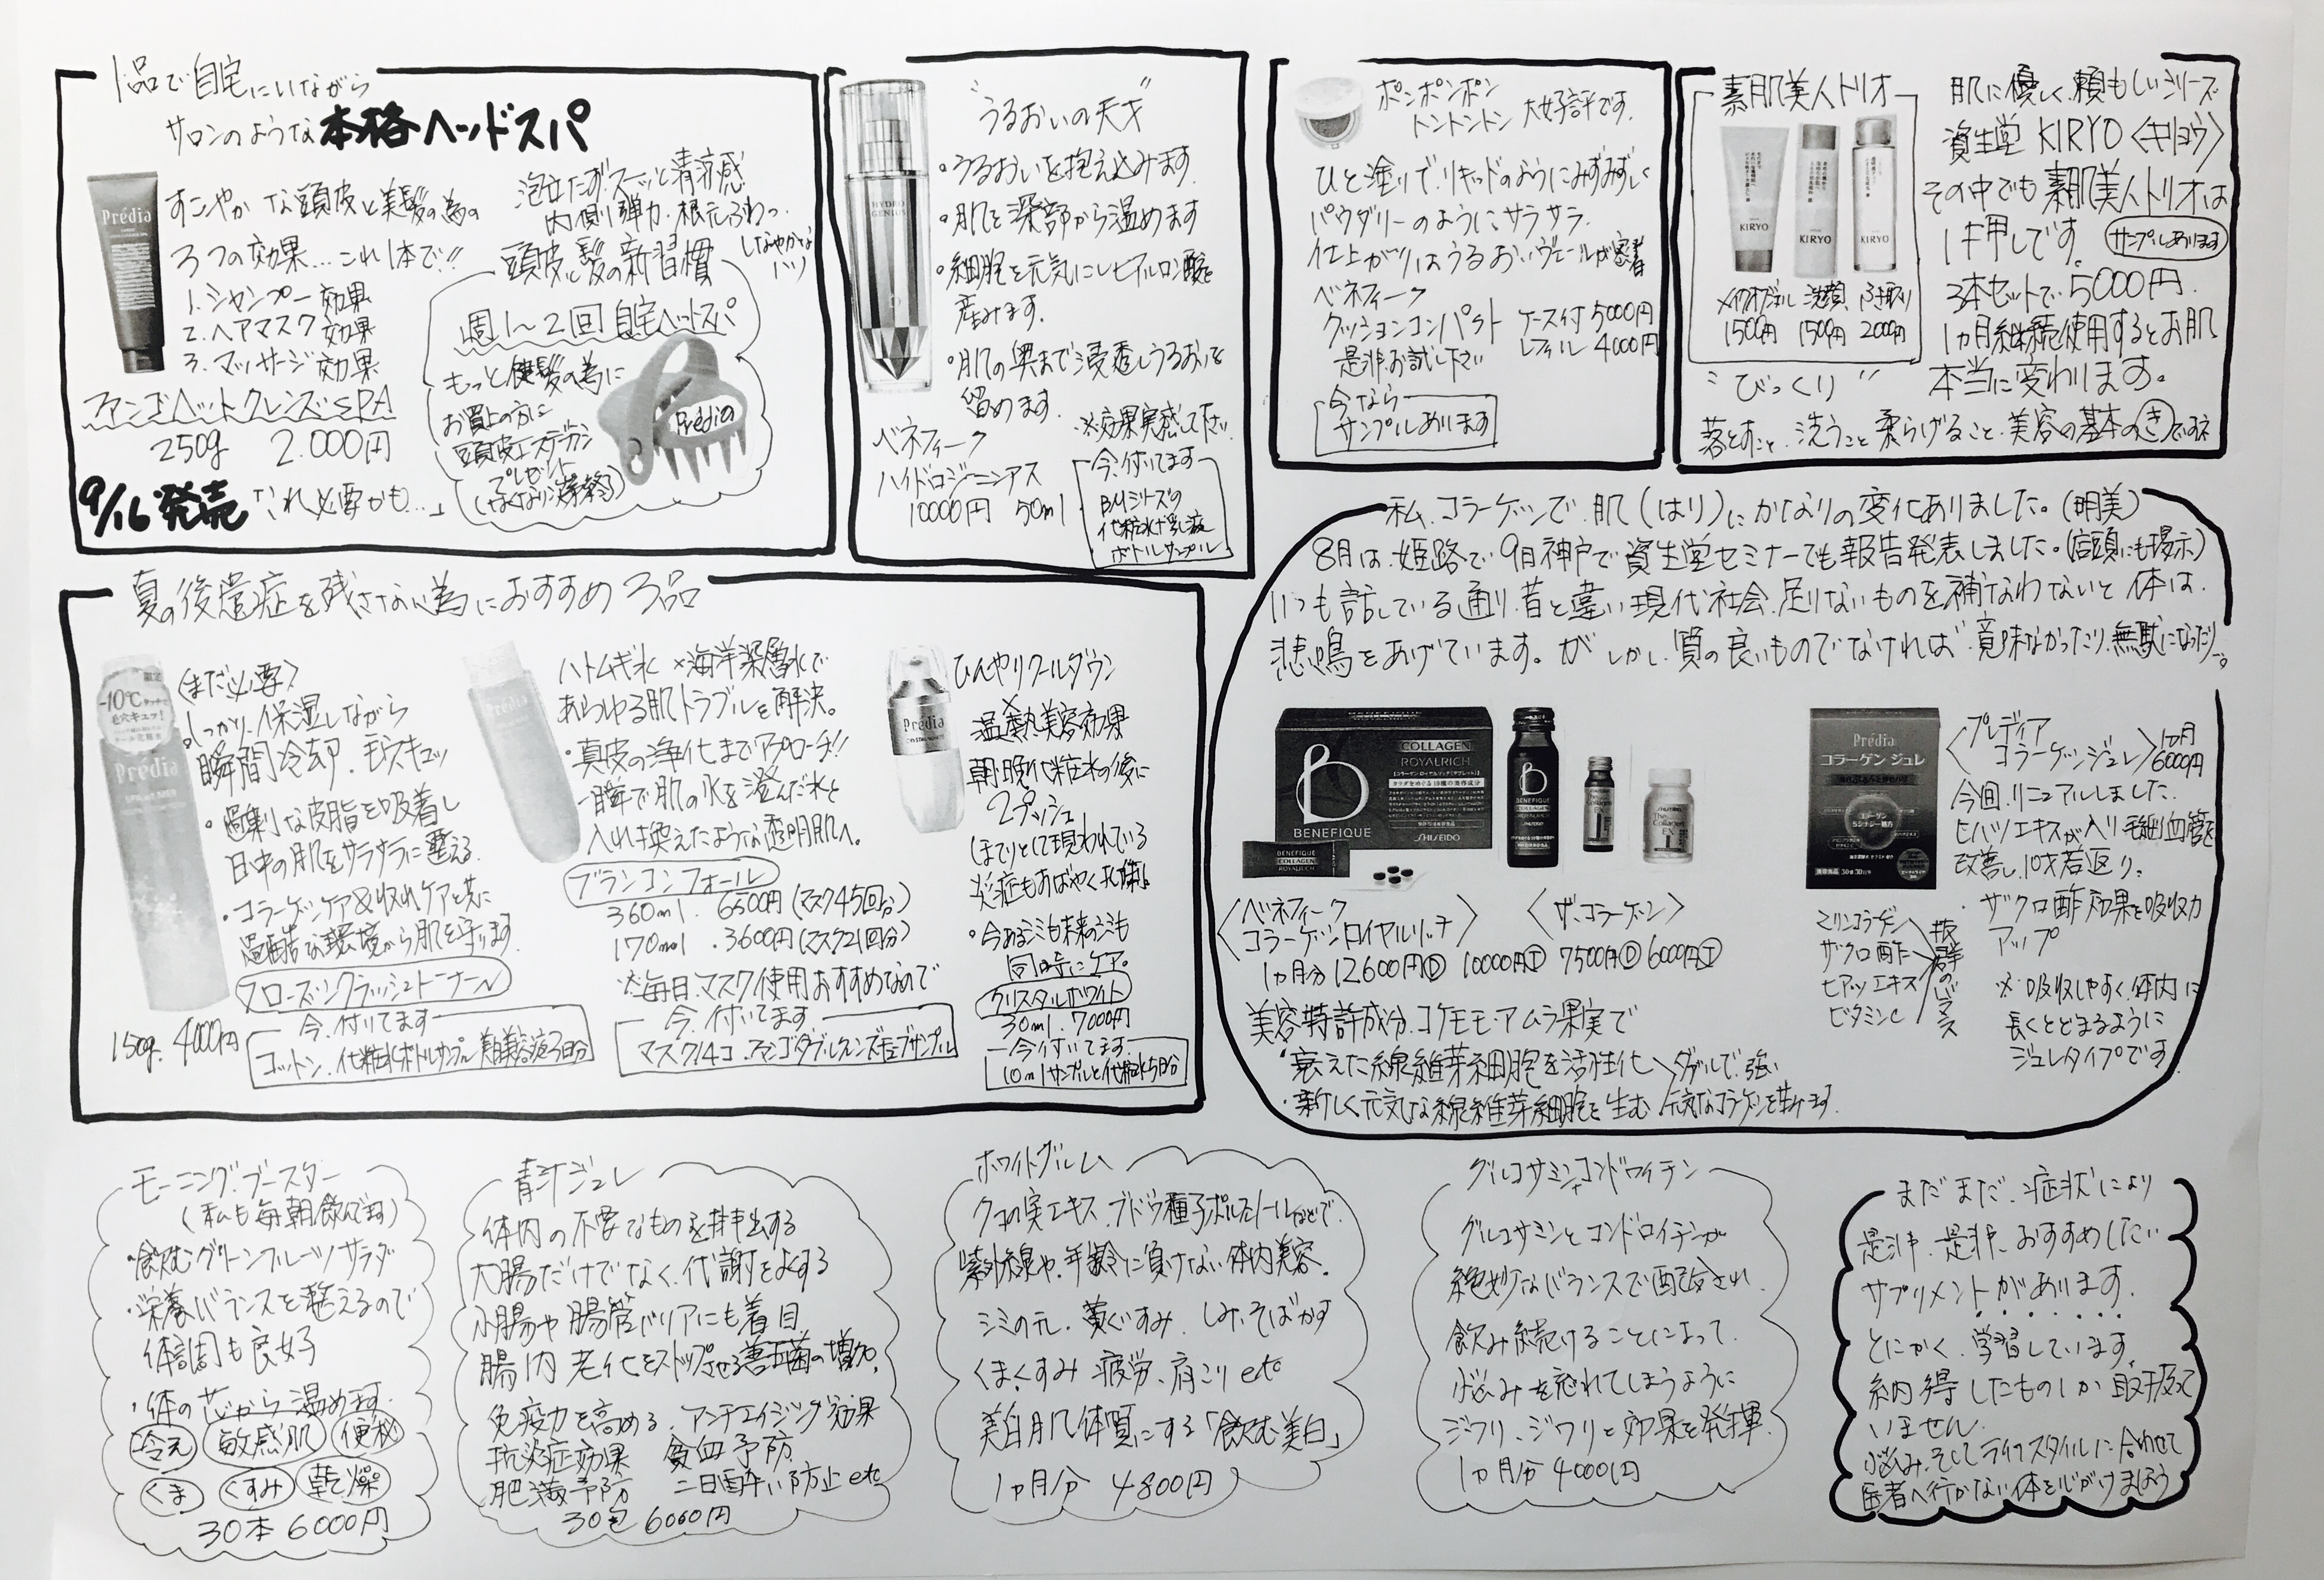 1品で自宅にいながら
サロンのような本格ヘッドスパ
Prédia
すこやかな頭皮と美髪の為の
3つの効果…これ1本で!!
1.シャンプー効果
2.ヘアマスク効果
3.マッサージ効果
ファンゴヘッドクレンズSPA
250g 2.000円
9/16発売「これ必要かも…」
泡立たず.スーッと清涼感
内側り弾力.根元ふわっ.
しなやかな
ハリ
頭皮と髪の新習慣
週1〜2回自宅ヘッドスパ
もっと健髪の為に
お買上の方に
頭皮エステブラシ
プレゼント
(なくなり次第終了)
Prédia
"うるおいの天才"
HYDRO
GENIUS
・うるおいを抱え込みます.
・肌を深部から温めます
・細胞を元気にしヒアルロン酸を
産みます.
・肌の奥まで浸透しうるおいを
留めます.
※効果実感して下さい.
ベネフィーク
ハイドロジーニアス
10000円 50ml
今.付いてます
BMシリーズの
化粧水+乳液
ボトルサンプル
ポンポンポン
トントントン 大好評です.
ひと塗りで.リキッドのようにみずみずしく
パウダリーのようにサラサラ.
仕上がりはうるおいヴェールが密着
ベネフィーク
クッションコンパクト ケース付 5000円
レフィル 4000円
是非お試し下さい
今なら
サンプルあります
素肌美人トリオ
KIRYO
KIRYO
KIRYO
メイクオフジェル 洗顔 ふき取り
1500円 1500円 2000円
"びっくり"
肌に優しく.頼もしいシリーズ
資生堂 KIRYO〈キリョウ〉
その中でも素肌美人トリオは
1押しです. サンプルあります
3本セットで.5000円.
1ヵ月継続使用するとお肌
本当に変わります。
落とすこと.洗うこと.柔らげること.美容の基本のきですネ
夏の後遺症を残さない為におすすめ3品
限定
-10℃タッチで
毛穴キュッ!
Prédia
SPA et MER
〈まだ必要〉
・しっかり.保湿しながら
瞬間冷却.毛穴キュッ
・過剰な皮脂を吸着し
日中の肌をサラサラに整える.
・コラーゲンケア&収れんケアと共に
過酷な環境から肌を守ります.
フローズンクラッシュトーナー
150g. 4000円
今.付いてます
コットン.化粧水ボトルサンプル.美白美容液3日分
Prédia
ハトムギ水×海洋深層水で
あらゆる肌トラブルを解決。
・真皮の浄化までアプローチ!!
一瞬で肌の水を澄んだ水と
入れ換えたような透明肌へ.
ブランコンフォール
360ml. 6500円(マスク45回分)
170ml .3600円(マスク21回分)
※毎日.マスク使用おすすめなので
今.付いてます
マスク14コ.ファンゴダブルクレンズチューブサンプル
Prédia
ひんやりクールダウン
×
温熱美容効果
朝.晩化粧水の後に
2プッシュ
ほてりとして現われている
炎症もすばやく
・今あるシミも未来のシミも
同時にケア。
クリスタルホワイト
30ml. 7000円
今付いてます.
10mlサンプルと化粧水5日分
私.コラーゲンで.肌(はり)にかなりの変化ありました。(明美)
8月は.姫路で9日神戸で資生堂セミナーでも報告発表しました。(店頭にも提示)
いつも話している通り.昔と違い現代社会.足りないものを補なわないと体は.
悲鳴をあげています。がしかし.質の良いものでなければ意味なかったり.無駄になったり。
BENEFIQUE
COLLAGEN
ROYALRICH
BENEFIQUE
SHISEIDO
BENEFIQUE
COLLAGEN
ROYALRICH
BENEFIQUE
COLLAGEN
ROYALRICH
The Collagen
SHISEIDO
The Collagen
EX
Prédia
コラーゲン ジュレ
〈ベネフィーク
コラーゲンロイヤルリッチ〉
1ヵ月分12600円Ⓓ 10000円Ⓣ
〈ザ.コラーゲン〉
7500円Ⓓ 6000円Ⓣ
美容特許成分.コケモモ・アムラ果実で
・衰えた線維芽細胞を活性化
・新しく元気な線維芽細胞を生む
ダブルで.強い
元気なコラーゲンを生みます.
〈プレディア
コラーゲンジュレ〉1ヵ月
6000円
今回.リニュアルしました.
ヒハツエキスが入り毛細血管を
改善し.10才若返り.
・ザクロ酢効果で吸収力
アップ
※.吸収しやすく.体内に
長くとどまるように
ジュレタイプです
マリンコラーゲン
ザクロ酢
ヒハツエキス
ビタミンC
抜群のバランス
モーニング.ブースター
(私も毎朝飲んでます)
・飲むグリーンフルーツサラダ
・栄養バランスを整えるので
体調も良好
・体の芯から温めます.
冷え 敏感肌 便秘
くま くすみ 乾燥
30本 6000円
青汁ジュレ
体内の不要なものを排出する
大腸だけでなく.代謝をよくする
小腸や腸管バリアにも着目
腸内 老化をストップさせる善玉菌の増加.
免疫力を高める.アンチエイジング効果
抗炎症効果 貧血予防
肥満予防 二日酔い防止 etc
30包 6000円
ホワイトグルム
クコの実エキス.ブドウ種子ポリフェノールなどで.
紫外線や.年齢に負けない体内美容.
シミの元.黄ぐすみ.しみ.そばかす
くま.くすみ 疲労、肩こり etc
美白肌体質にする「飲む美白」
1ヵ月分 4800円
グルコサミン+コンドロイチン
グルコサミンとコンドロイチンが
絶妙なバランスで配合され.
飲み続けることによって.
悩みを忘れてしまうように
ジワリ、ジワリと効果を発揮.
1ヵ月分 4000円
まだまだ.症状により
是非.是非.おすすめしたい
サプリメントがあります.
とにかく.学習しています.
納得したものしか取扱って
いません.
悩み.そしてライフスタイルに合わせて
医者へ行かない体を心がけましょう